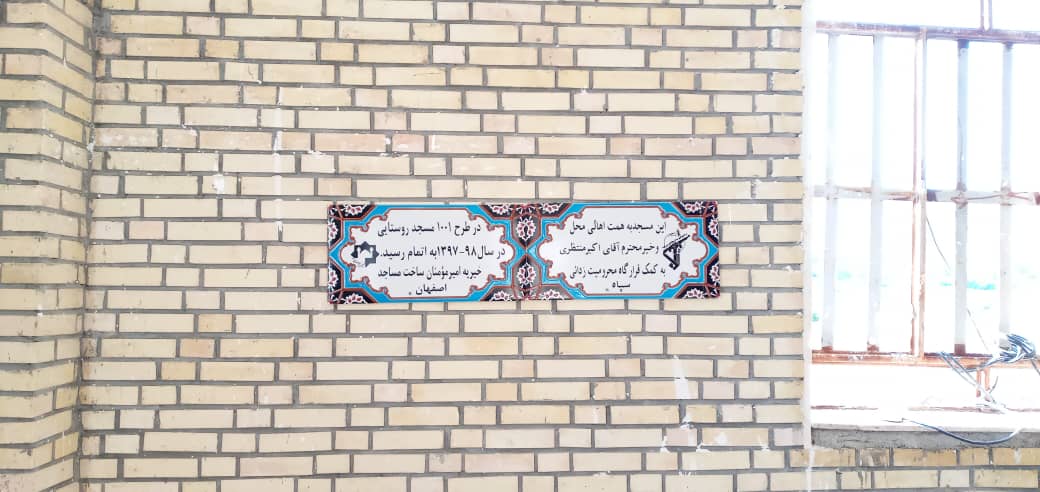 این مسجدبه همت اهالی محل
وخیرمحترم آقای اکبرمنتظری
به کمک قرارگاه محرومیت زدائی
سپاه
در طرح ۱۰۰۱ مسجد روستایی
در سال۹۸-۱۳۹۷به اتمام رسید.
خیریه امیرمؤمنان ساخت مساجد
اصفهان